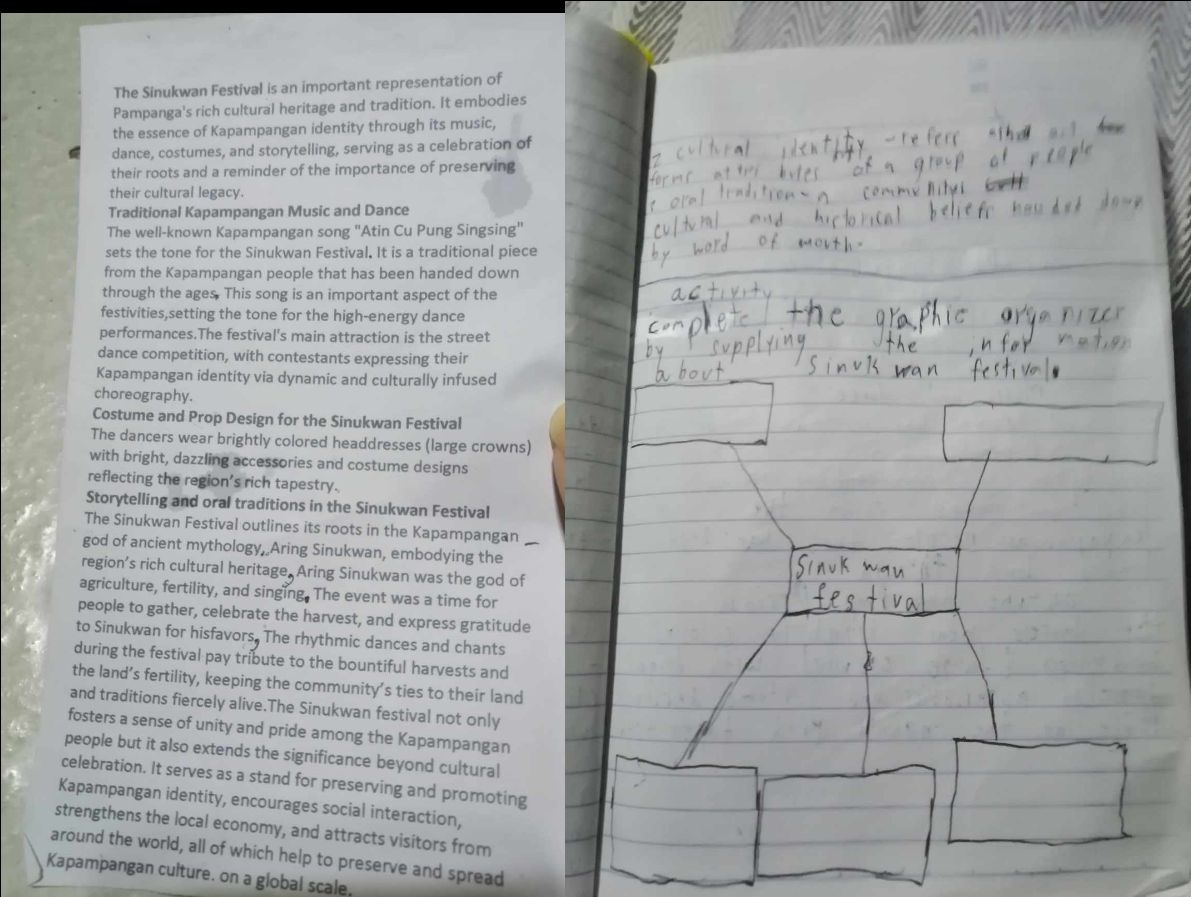 The Sinukwan Festival is an important representation of
Pampanga's rich cultural heritage and tradition. It embodies
the essence of Kapampangan identity through its music,
dance, costumes, and storytelling, serving as a celebration of
their roots and a reminder of the importance of preserving
their cultural legacy.
Traditional Kapampangan Music and Dance
The well-known Kapampangan song "Atin Cu Pung Singsing"
sets the tone for the Sinukwan Festival. It is a traditional piece
from the Kapampangan people that has been handed down
through the ages, This song is an important aspect of the
festivities,setting the tone for the high-energy dance
performances.The festival's main attraction is the street
dance competition, with contestants expressing their
Kapampangan identity via dynamic and culturally infused
choreography.
Costume and Prop Design for the Sinukwan Festival
The dancers wear brightly colored headdresses (large crowns)
with bright, dazzling accessories and costume designs
reflecting the region's rich tapestry.
Storytelling and oral traditions in the Sinukwan Festival
The Sinukwan Festival outlines its roots in the Kapampangan
god of ancient mythology, Aring Sinukwan, embodying the
region's rich cultural heritage, Aring Sinukwan was the god of
agriculture, fertility, and singing, The event was a time for
people to gather, celebrate the harvest, and express gratitude
to Sinukwan for hisfavors, The rhythmic dances and chants
during the festival pay tribute to the bountiful harvests and
the land's fertility, keeping the community's ties to their land
and traditions fiercely alive.The Sinukwan festival not only
fosters a sense of unity and pride among the Kapampangan
people but it also extends the significance beyond cultural
celebration. It serves as a stand for preserving and promoting
Kapampangan identity, encourages social interaction,
strengthens the local economy, and attracts visitors from
around the world, all of which help to preserve and spread
Kapampangan culture. on a global scale.
cultural identity -refers
of a group of people
oral tradition-a communitys
cultural and historical beliefs handed down
by word of mouth.
activity
complete the graphic organizer
by supplying the information
about Sinukwan festival.
Sinukwan
festival